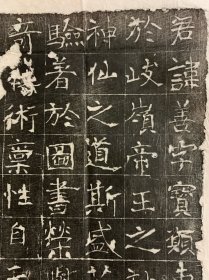 君諱善字寶頭
於岐嶺帝王之
神仙之道斯盛
驗著於圖書榮
奇術稟性自